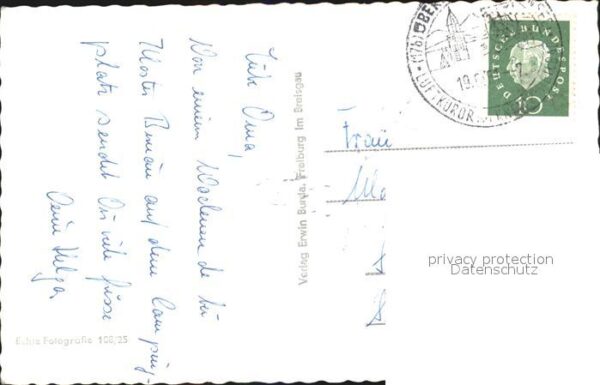 Liebe Oma,
Von einem Wochenende bei
Kloster Beuron auf dem Camping-
platz sendet Dir viele Grüsse
Deine Helga
Echte Fotografie 108/25
Verlag Erwin Burda, Freiburg im Breisgau
DEUTSCHE BUNDESPOST
10
LUFTKURORT
19.6.
Frau
privacy protection
Datenschutz